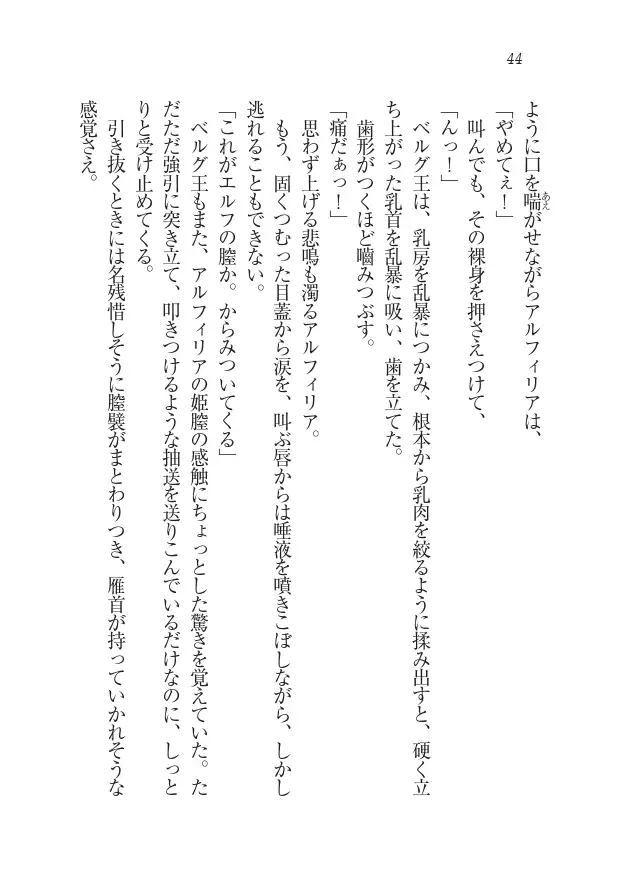 44
ように口を喘がせながらアルフィリアは、
あえ
「やめてぇ！」
叫んでも、その裸身を押さえつけて、
「んっ！」
ベルグ王は、乳房を乱暴につかみ、根本から乳肉を絞るように揉み出すと、硬く立
ち上がった乳首を乱暴に吸い、歯を立てた。
歯形がつくほど嚙みつぶす。
「痛だぁっ！」
思わず上げる悲鳴も濁るアルフィリア。
もう、固くつむった目蓋から涙を、叫ぶ唇からは唾液を噴きこぼしながら、しかし
逃れることもできない。
「これがエルフの膣か。からみついてくる」
ベルグ王もまた、アルフィリアの姫膣の感触にちょっとした驚きを覚えていた。た
だただ強引に突き立て、叩きつけるような抽送を送りこんでいるだけなのに、しっと
りと受け止めてくる。
引き抜くときには名残惜しそうに膣襞がまとわりつき、雁首が持っていかれそうな
感覚さえ。